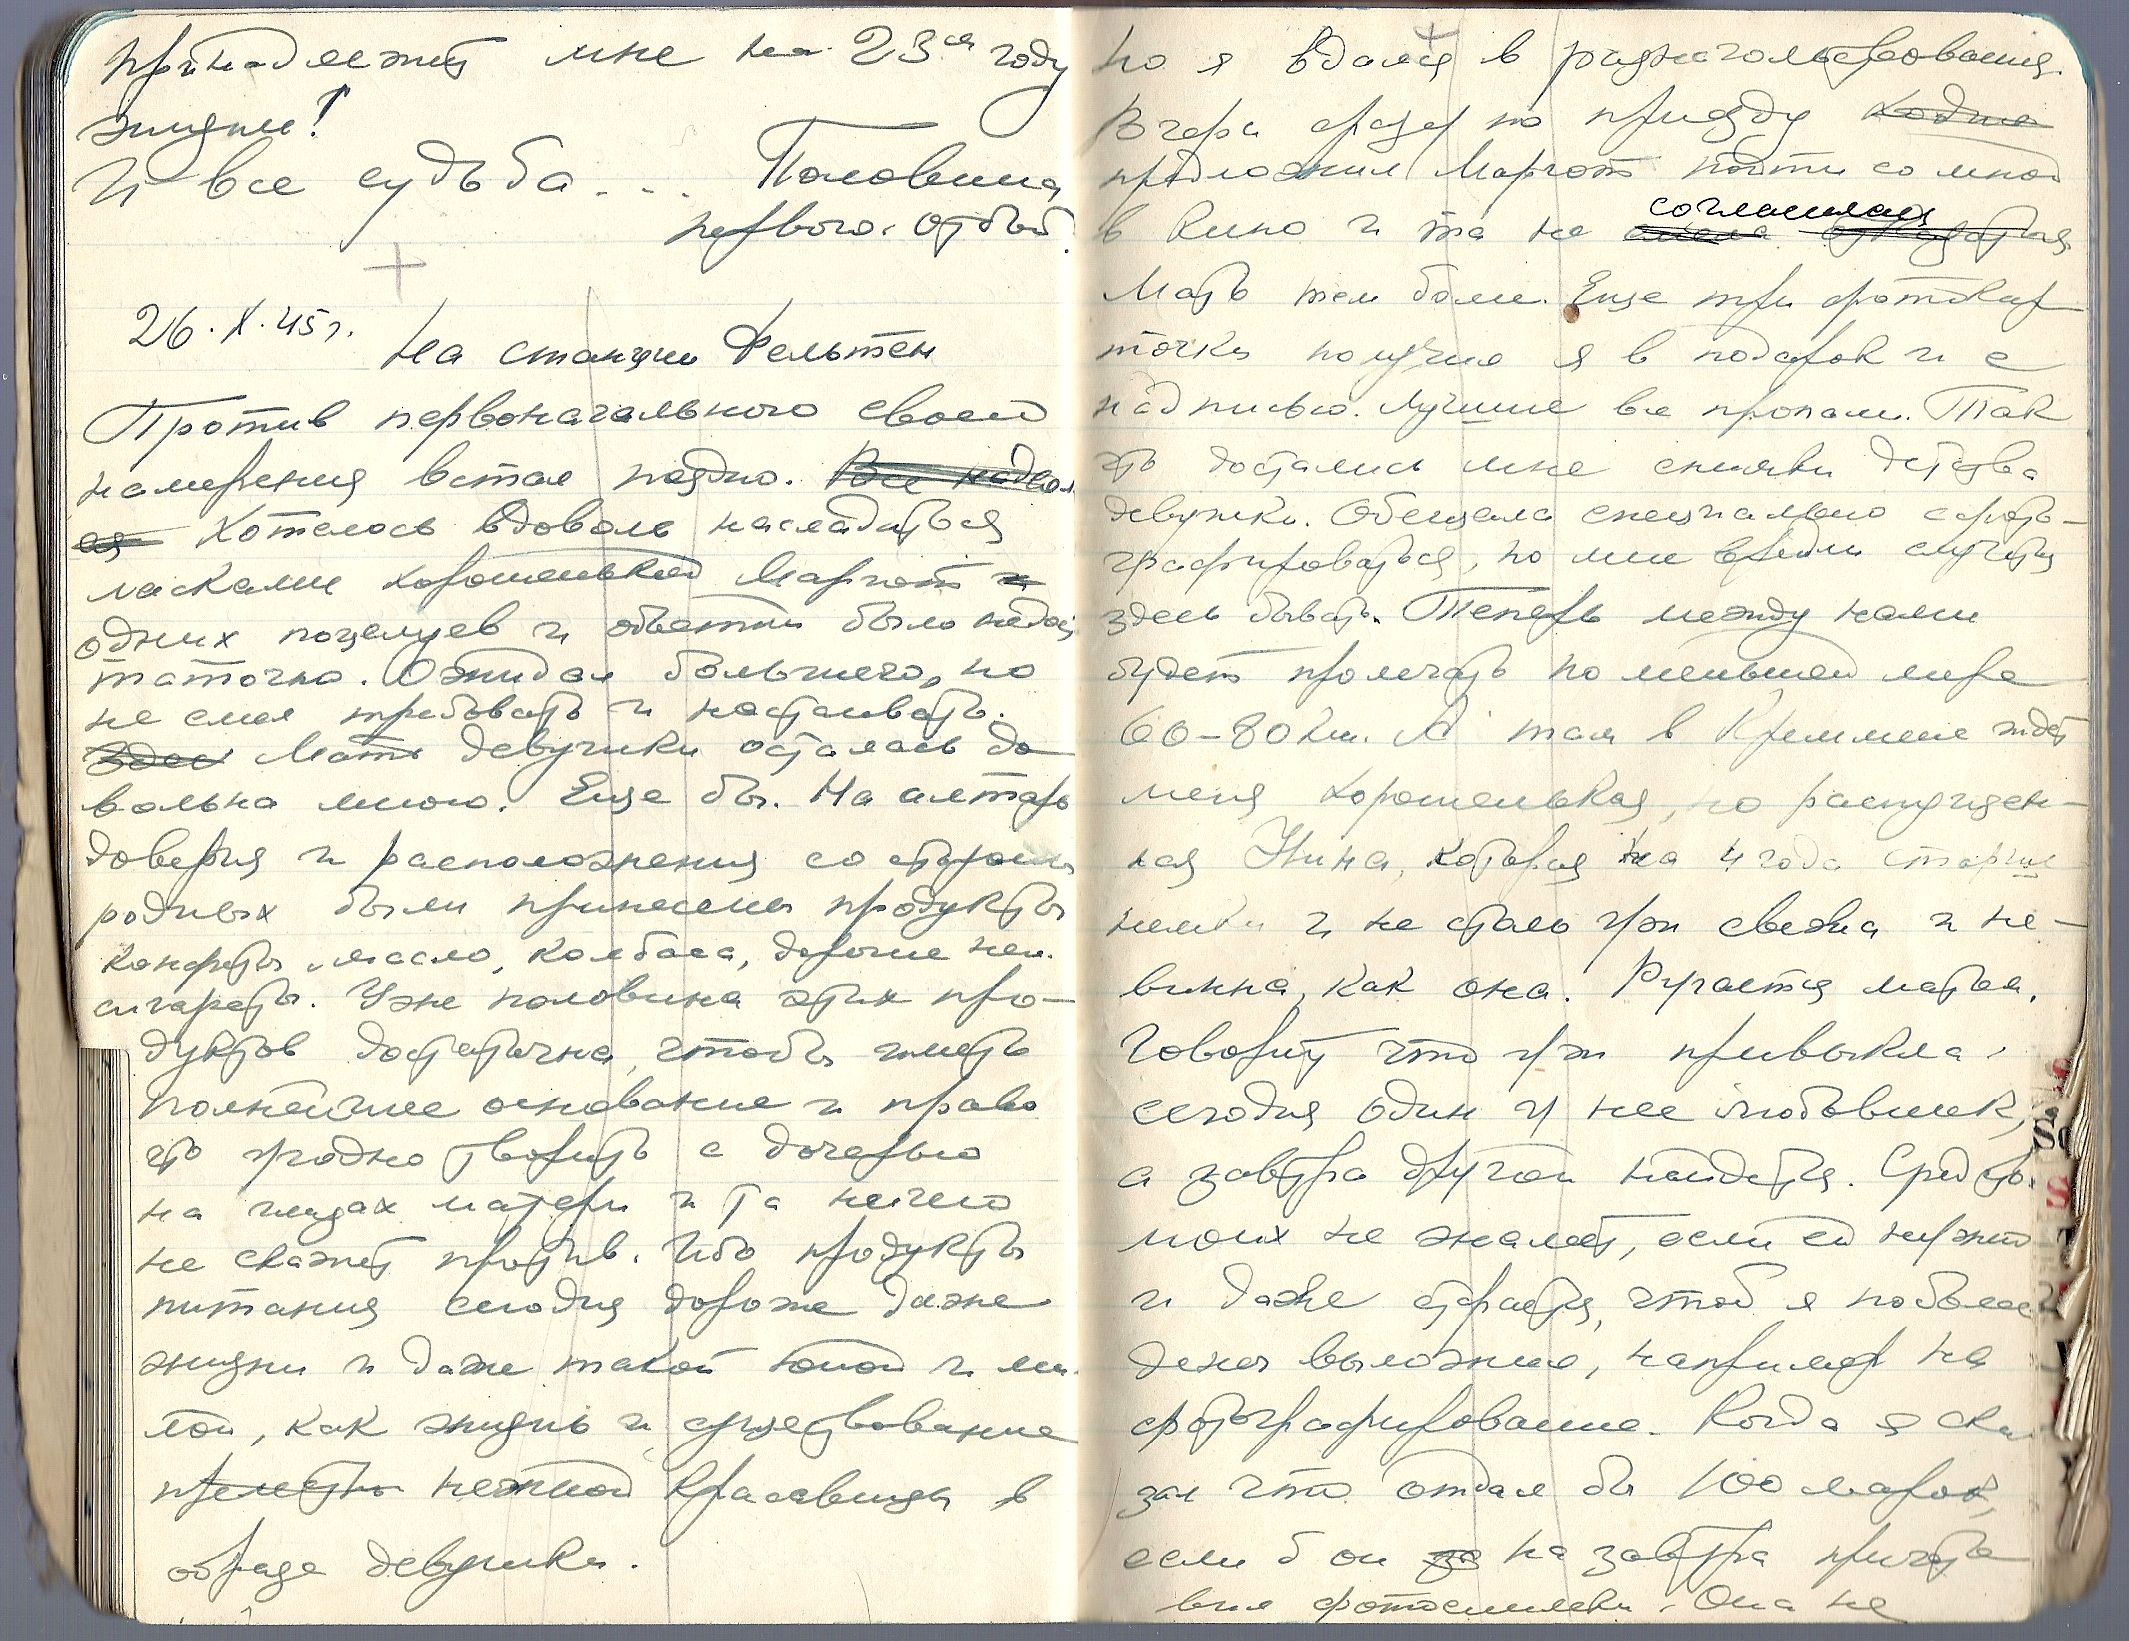 принадлежит мне на 23ем году
жизни!
И все судьба... Половина
первого. Отбой.
26.X.45 г.
На станции Фельтен
Против первоначального своего
намерения встал поздно. Все надвол
ся Хотелось вдоволь насладиться
ласками хорошенькой Маргот и
одних поцелуев и объятий было недос
таточно. Ожидал большего, но
не смел требовать и настаивать.
Здес Мать девушки осталась до
вольна мною. Еще бы. На алтарь
доверия и расположения со стороны
родных были принесены продукты
конфеты, масло, колбаса, дорогие нем.
сигареты. Уже половина этих про-
дуктов достаточна, чтобы иметь
полнейшее основание и право
что угодно творить с дочерью
на глазах матери и та ничего
не скажет против. Ибо продукты
питания сегодня дороже даже
жизни и даже такой юной и ми
лой, как жизнь и существование
прелестно нежной красавицы в
образе девушки.
но я вдался в разглагольствования.
Вчера сразу по приезду
предложил Маргот пойти со мной
согласилась
в кино и та не смела отказаться
Мать тем боле. Еще три фотокар
точки получил я в подарок и с
надписью. Лучшие все пропали. Так
что достались мне снимки детства
девушки. Обещала специально сфото-
графироваться, но мне вряд ли случится
здесь бывать. Теперь между нами
будет пролегать по меньшей мере
60-80 км. А там в Креммене ждет
меня хорошенькая, но распущен-
ная Нина, которая на 4 года старше
немки и не столь уж свежа и не-
винна, как она. Ругается матом.
Говорит что уж привыкла.
сегодня один у нее любовник,
а завтра другой найдется. Средств
моих не жалеет, если ей нужно
и даже старается, чтоб я побольше
денег выложил, например на
фотографирование. Когда я ска
зал что отдал бы 100 марок,
если б он за на завтра пригото
вил фотоснимки. Она не